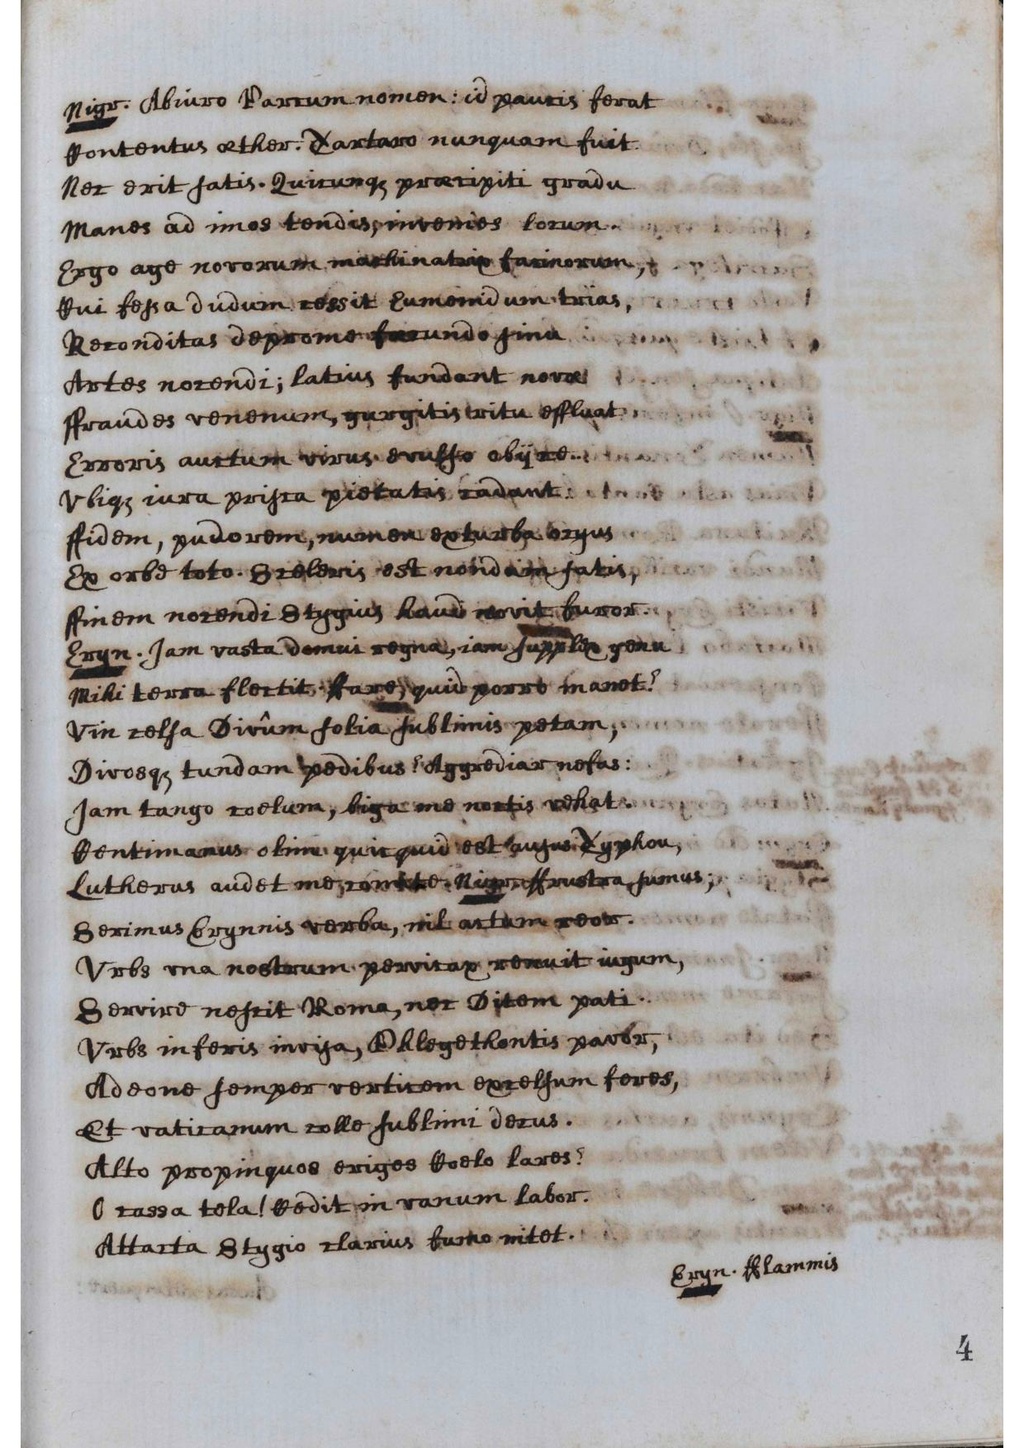 Nigr. Abiuro Parcum nomen: id paucis ferat
Contentus æther. Tartaro nunquam fuit
Nec erit satis. Quicunqꝫ præcipiti gradu
Manes ad imos tendis, invenies locum.
Ergo age novorum machinatrix facinorum,
Cui fessa dudum cessit Eumenidum trias,
Reconditas deprome facundo sinu
Artes nocendi; latius fundant novæ
ffraudes venenum, gurgitis ritu effluat
Erroris auctum virus. evulso obijce
Vbiqꝫ iura prisca pietatis cadant.
ffidem, pudorem, numen exturba ocyus
Ex orbe toto. Sceleris est nondum satis,
ffinem nocendi Stygius haud novit furor.
Eryn. Jam vasta domui regna, iam supplex genu
Mihi terra flectit. ffare, quid porro manet?
Vin celsa Divûm solia sublimis petam,
Divosqꝫ tundam pedibus? Aggrediar nefas:
Jam tango coelum, biga me noctis vehat.
Centimanus olim quicquid est ausus Typhon,
Lutherus audet me comite. Nigr. ffrustra sumus;
Serimus Erynnis verba, nil actum reor.
Vrbs vna nostrum pervicax renuit iugum,
Servire nescit Roma, nec Ditem pati.
Vrbs inferis invisa, Phlegethontis pavor,
Adeone semper verticem excelsum feres,
Et vaticanum colle sublimi decus.
Alto propinquos eriges Coelo lares?
O cassa tela! Cedit in vanum labor.
Attacta Stygio clarius fumo nitet.
Eryn. fflammis
4